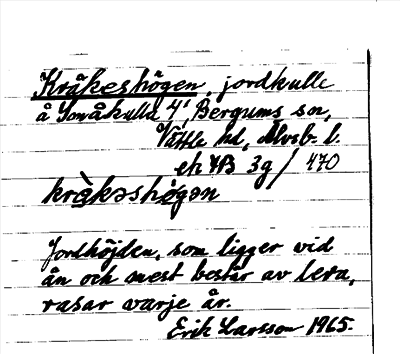 Kråkeshögen, jordkulle
å Småkulla 4¹, Bergums sn,
Vättle hd, Älvsb. l.
ek 7B 3g / 470
kràkəshögən
Jordhöjden, som ligger vid
ån och mest består av lera,
rasar varje år.
Erik Larsson 1965.